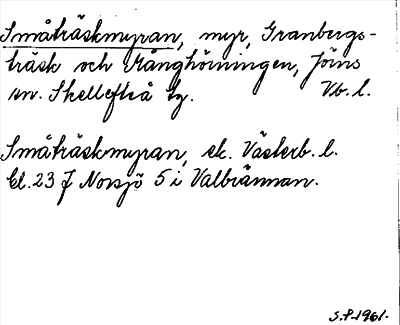 Småträskmyran, myr, Granbergs-
träsk och Månghörningen, Jörns
sn. Skellefteå tg. Vb. l.
Småträskmyran, ek. Västerb. l.
bl. 23 J Norsjö 5 i Valbrännan.
S.P. 1961.